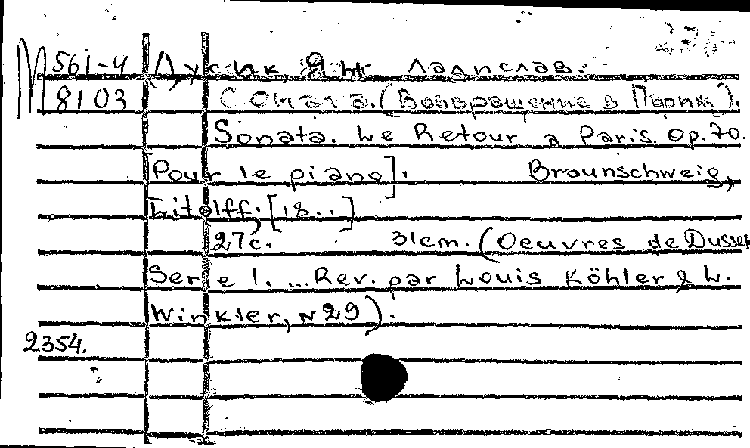 М 561-4 Дусик, Ян Ладислав.
8103 Соната. (Возвращение в Париж).
Sonata. Le Retour a Paris. Op. 70.
[Pour le piano]. Braunschweig,
Litolff, [18..]
27с. 31cm. (Oeuvres de Dussek
Serie 1. ... Rev. par Louis Köhler & L.
Winkler, N 29).
2354.